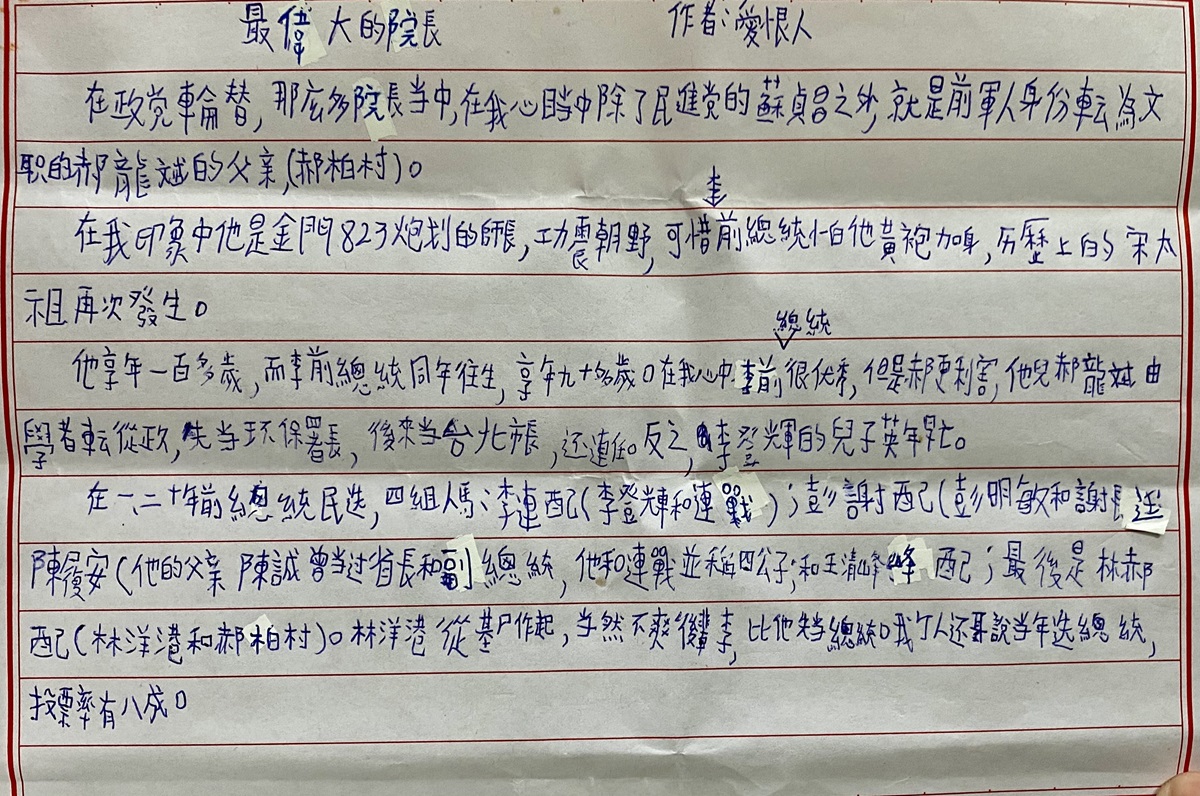 最偉大的院長 作者:愛恨人
在政党輪替,那広多院長当中,在我心目当中除了民進党的蘇貞昌之外,就是前軍人身份転為文
职的郝龍斌的父亲,(郝柏村)。
李
在我印象中他是金門823炮划的師長,功震朝野,可惜前總統怕他黃袍加身,历歷上的宋太
祖再次發生。
總統
他享年一百多歲,而李前總統同年往生,享年九十多歲。在我心中,李前很优秀,但是郝更利害,他兒郝龍斌由
學者転從政,先当环保署長,後來当台北市長,还連任。反之,李登輝的兒子英年早亡。
在一、二十年前總統民选,四組人馬:李連配(李登輝和連戰);彭謝配(彭明敏和謝長廷
陳履安(他的父亲陳誠曾当过省長和副總統,他和連戰並稱四公子;和王清峰 峰配;最後是林郝
配(林洋港和郝柏村)。林洋港從基户作起,当然不爽後輩李,比他先当總統。我个人还聽說当年选總統,
投票率有八成。